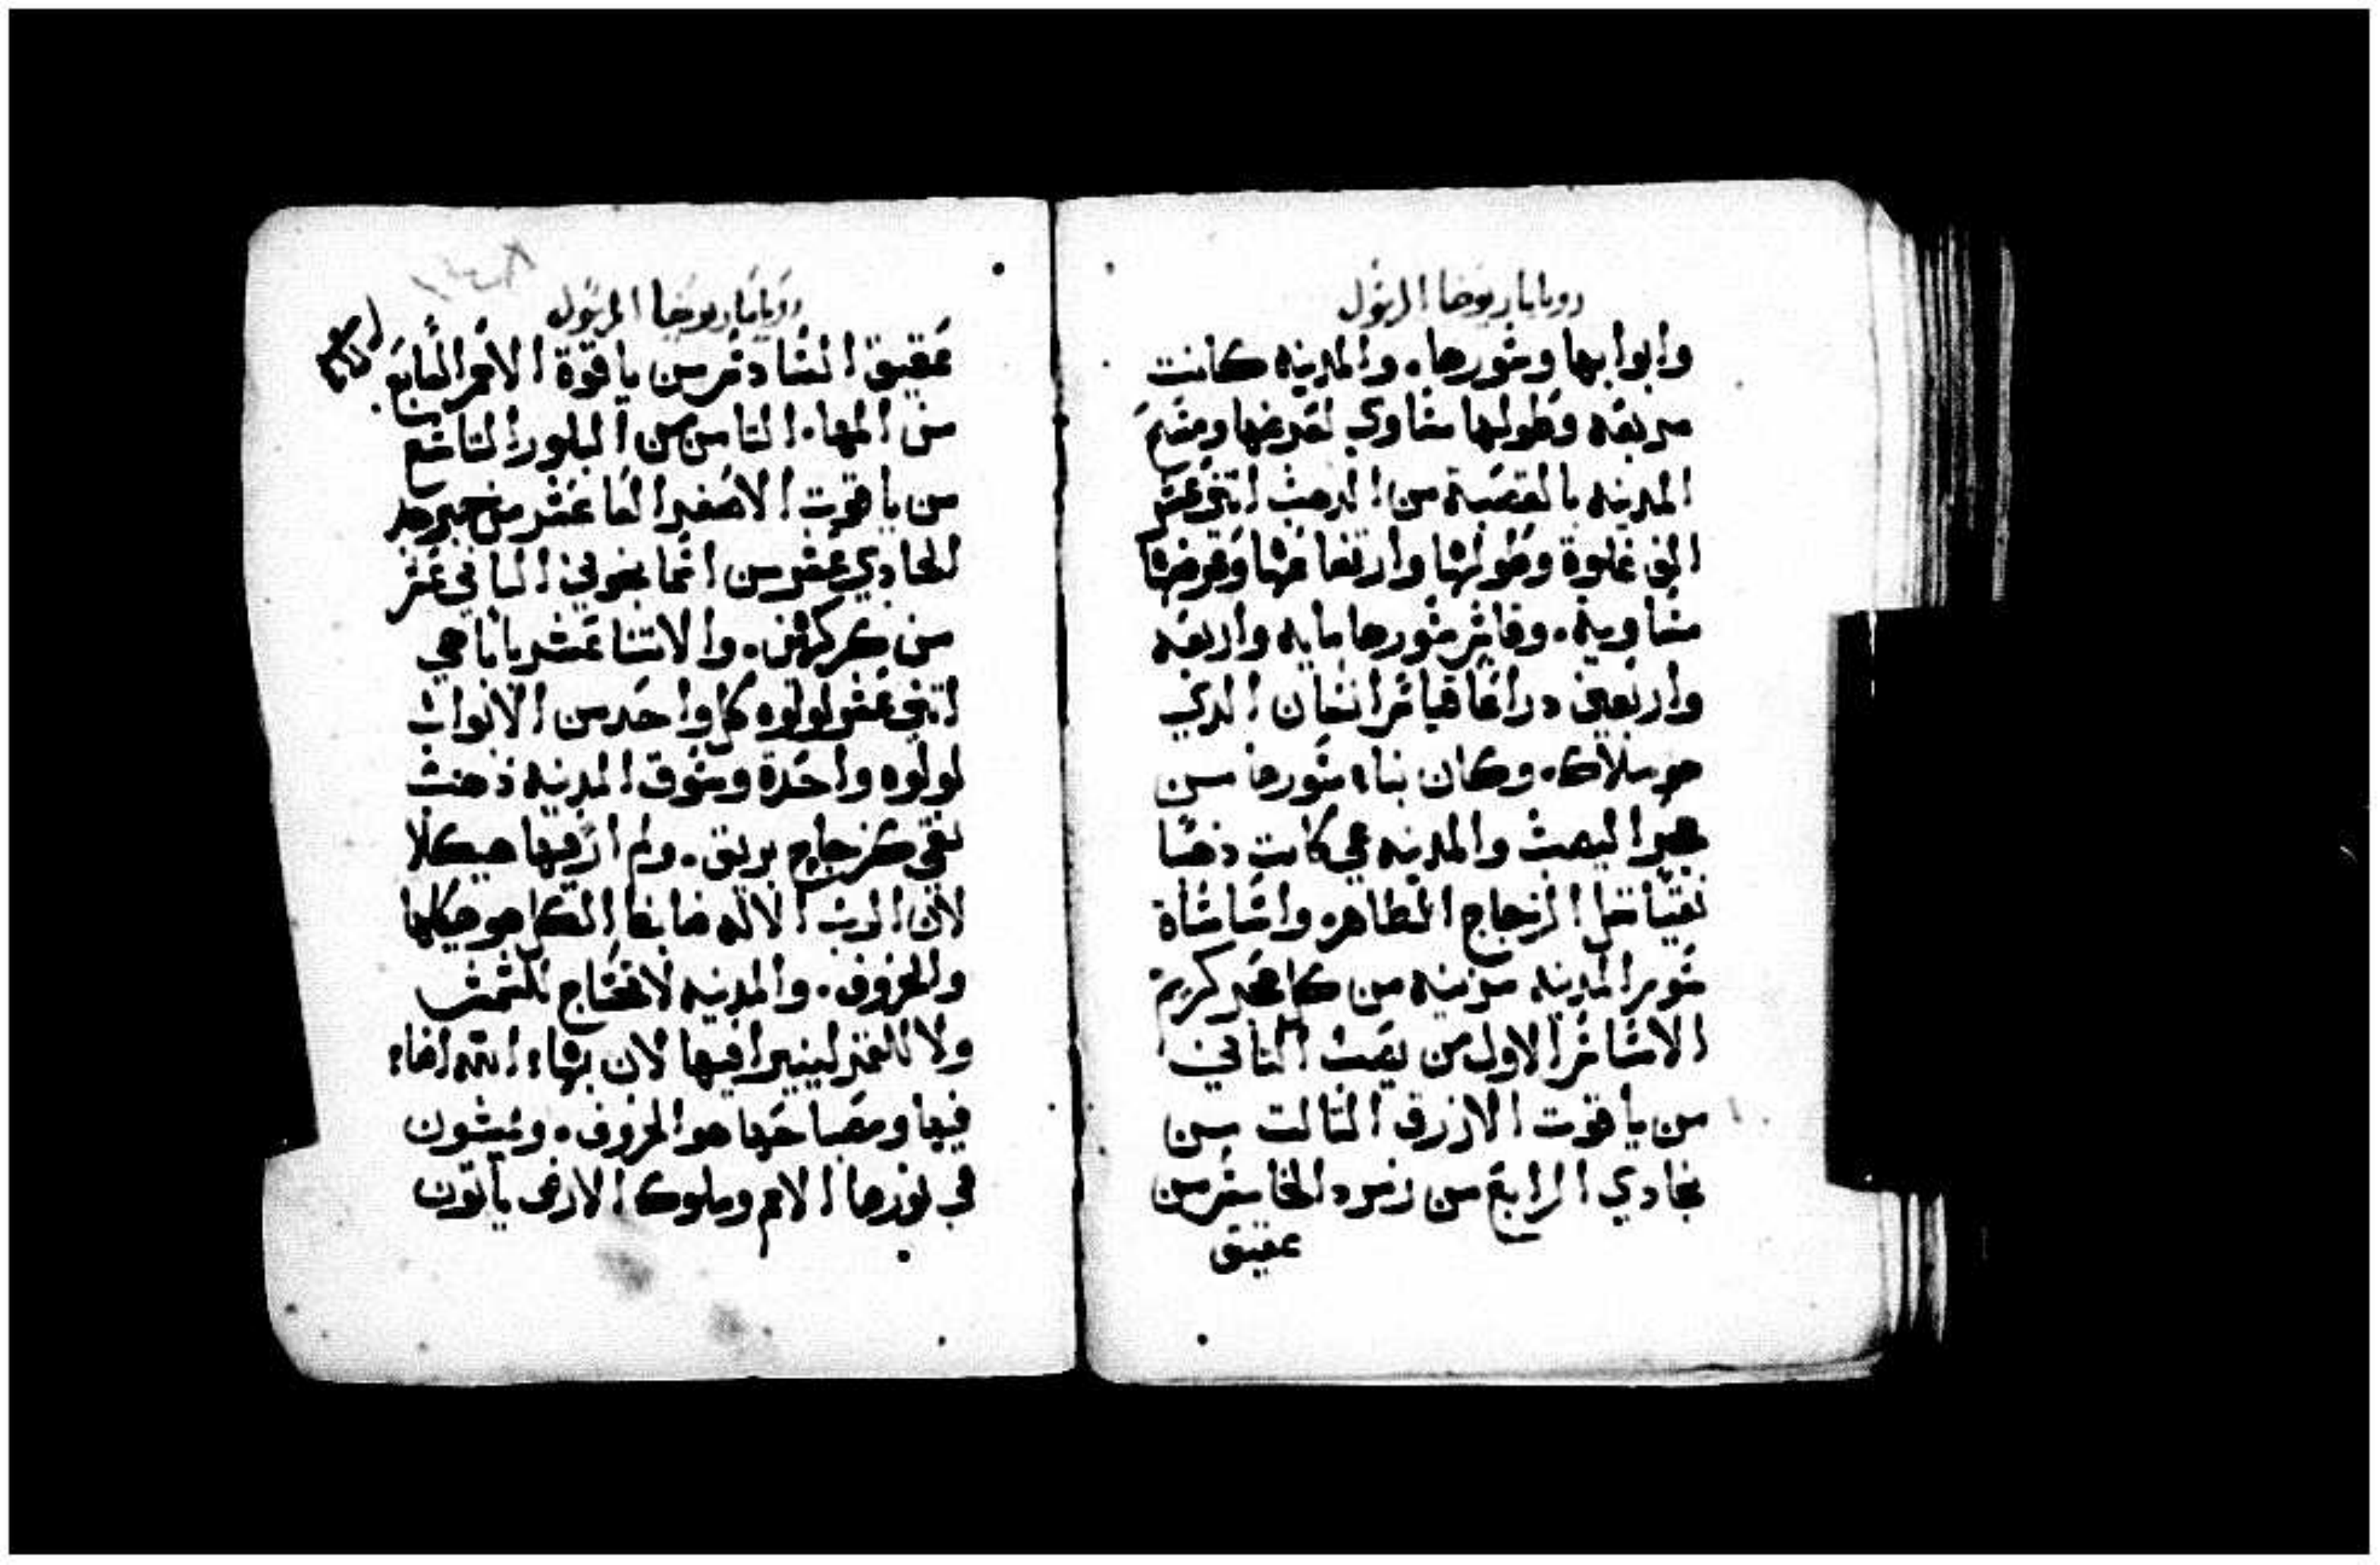 رويا مار يوحنا الرسول
وابوابها وسورها. والمدينه كانت
مربعه وطولها مساوي لعرضها ومسح
المدينه بالقصبة من الدهب اتني عشر
الف غلوة وطولها وارتفاعها وعرضها
مساوية. وقايس سورها مايه واربعه
واربعين دراعا قياس انسان الدي
هو ملاك. وكان بناء سورها من
حجر اليصب والمدينه هي كانت دهبا
نقيا متل الزجاج الطاهر واساسات
سور المدينه مزينه من كل حجر كريم
الاساس الاول من يصب التاني
من ياقوت الازرق التالت من
نجادي الرابع من زمرد الخامس من
عقيق
رويا مار يوحنا الرسول
عقيق السادس من ياقوة الاحمر السابع
من المها. التامن من البلور التاسع
من ياقوت الاصفر العاشر من
الحادي عشر من اسمانجوني التاني عشر
من كركهن. والاتنا عشر بابا هي
اتني عشر لولوه كل واحد من الابواب
لولوه واحدة وسوق المدينه ذهب
نقي كزجاج بريق. ولم ار فيها هيكلا
لان الرب الاله ضابط الكل هو هيكلها
والخروف. والمدينه لا تحتاج للشمس
ولا للقمر لينيرا فيها لان بهاء الله اضاء
فيها ومصباحها هو الخروف. ويمشون
في نورها الامم وملوك الارض ياتون